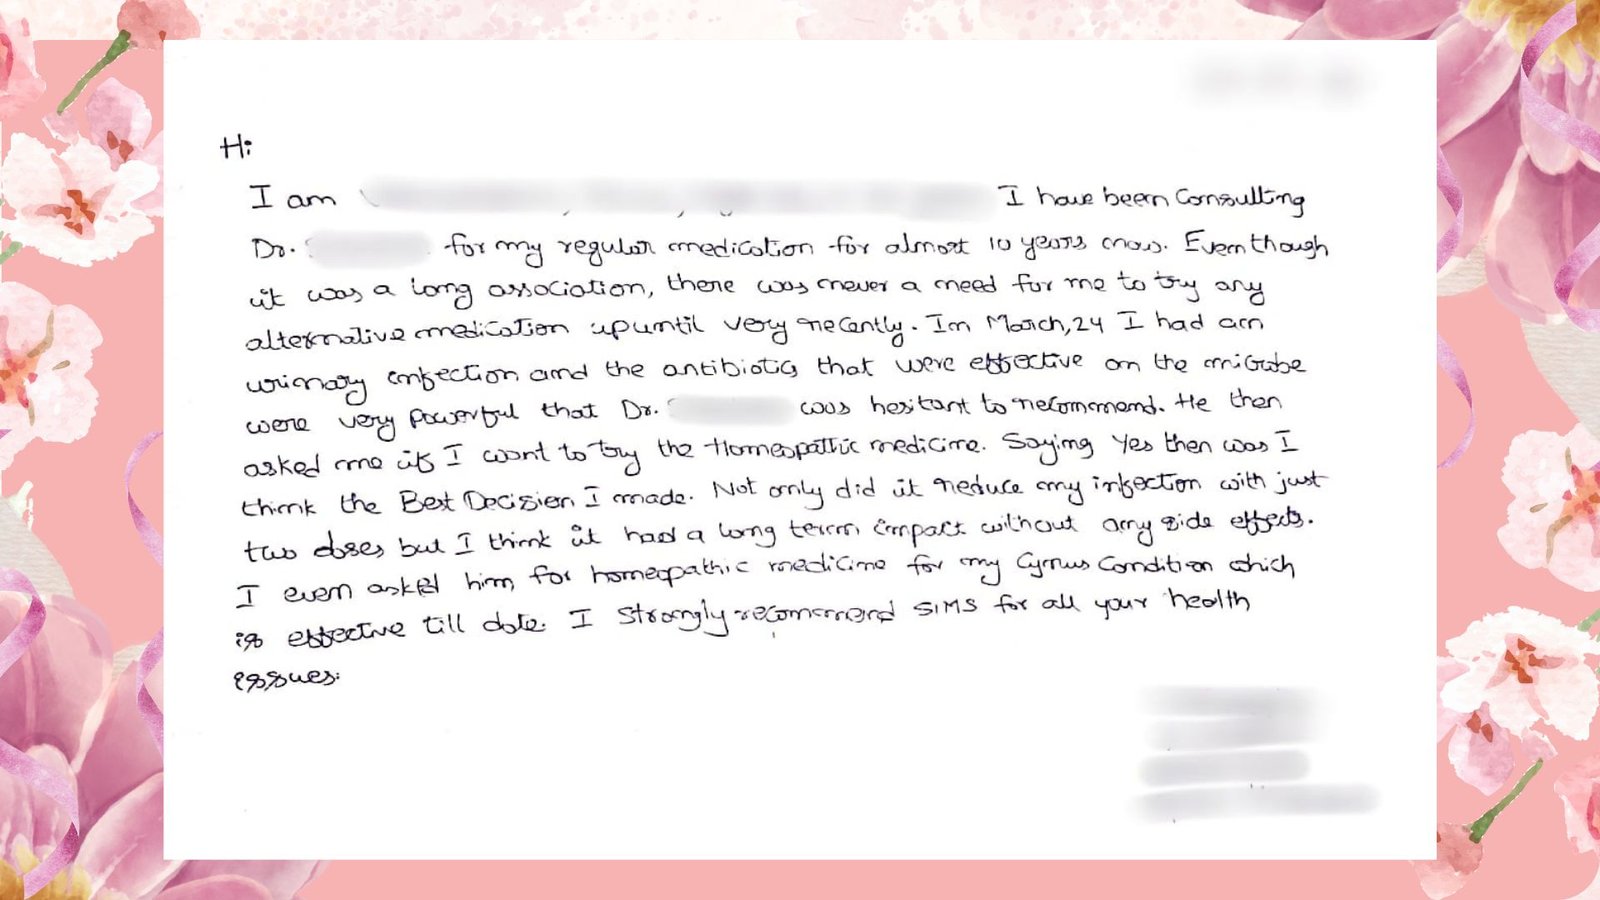 Hi
I am I have been Consulting
Dr. for my regular medication for almost 10 years now. Even though
it was a long association, there was never a need for me to try any
alternative medication upuntil very recently. In March, 24 I had an
urinary infection and the antibiotics that were effective on the microbe
were very powerful that Dr. was hesitant to recommend. He then
asked me if I want to try the Homeopathic medicine. Saying Yes then was I
think the Best Decision I made. Not only did it reduce my infection with just
two doses but I think it had a long term impact without any side effects.
I even asked him for homeopathic medicine for my Cynus Condition which
is effective till date. I Strongly recommend SIMS for all your health
issues.